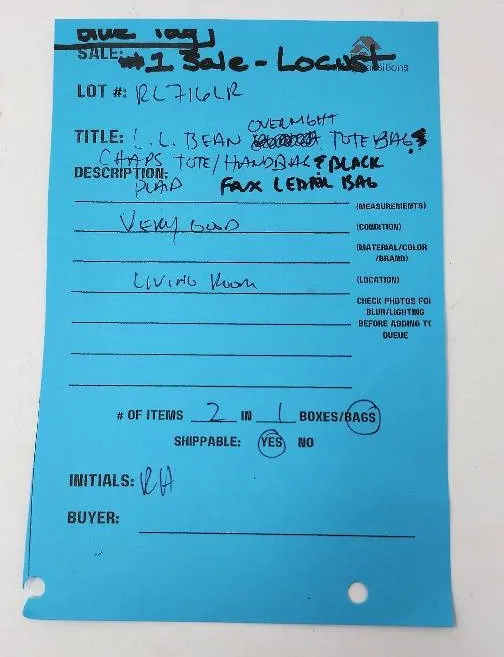 Blue Tag
SALE: #1 Sale - Locust
LOT #: RL716LR
OVERNIGHT
TITLE: L.L. BEAN TOTE BAG &
CHAPS TOTE/HANDBAG & BLACK
DESCRIPTION:
PLAID FAX LEDAIL BAG
(MEASUREMENTS)
VERY GOOD (CONDITION)
(MATERIAL/COLOR
/BRAND)
LIVING ROOM (LOCATION)
CHECK PHOTOS FOR
BLUR/LIGHTING
BEFORE ADDING TO
QUEUE
# OF ITEMS 2 IN 1 BOXES/BAGS
SHIPPABLE: YES NO
INITIALS: RH
BUYER: